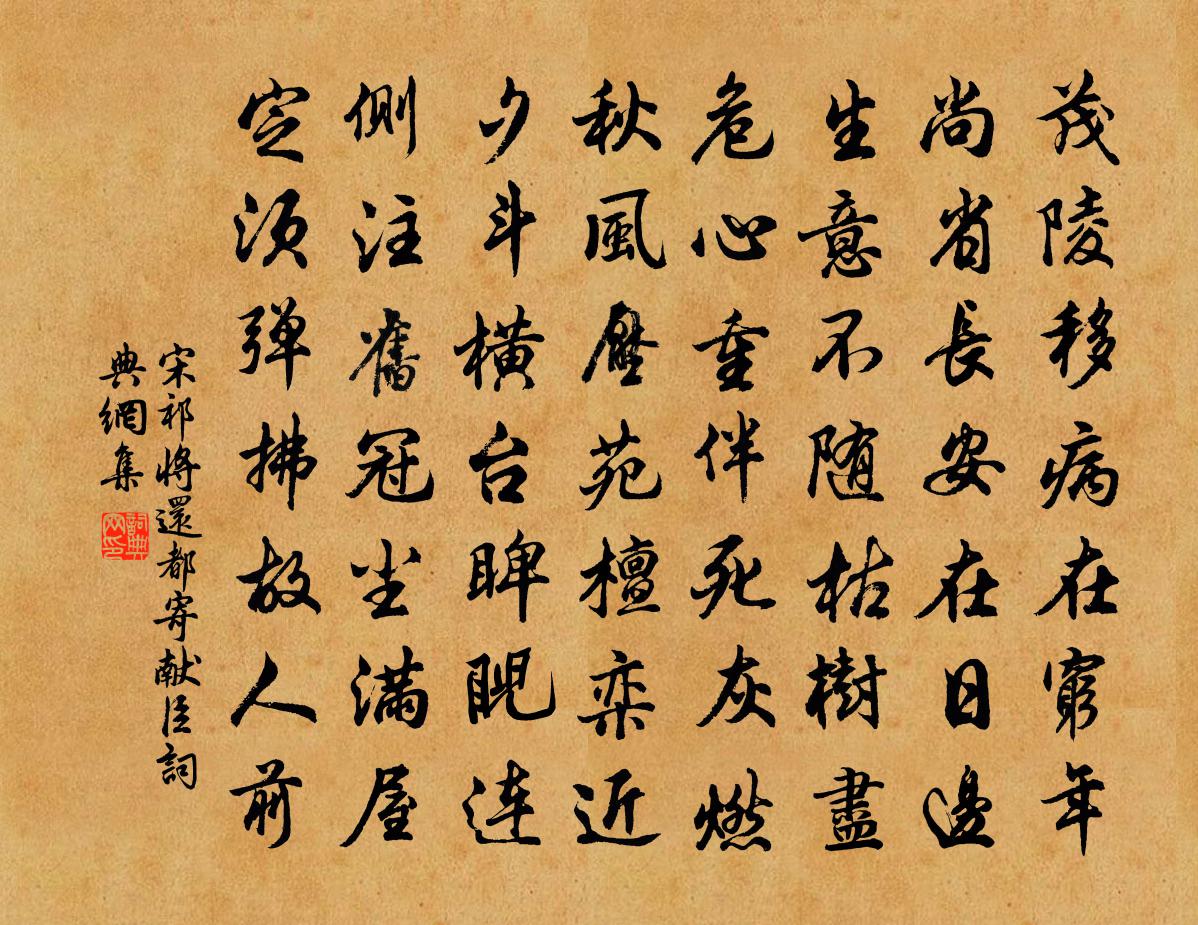 茂陵移病在窮年
尚省長安在日邊
生意不随枯樹盡
危心重伴死灰燃
秋風壓苑檀欒近
夕斗橫台睥睨連
側注舊冠尘满屋
定须弹拂故人前
宋祁將還都寄献臣詞
典網集
詞典网印